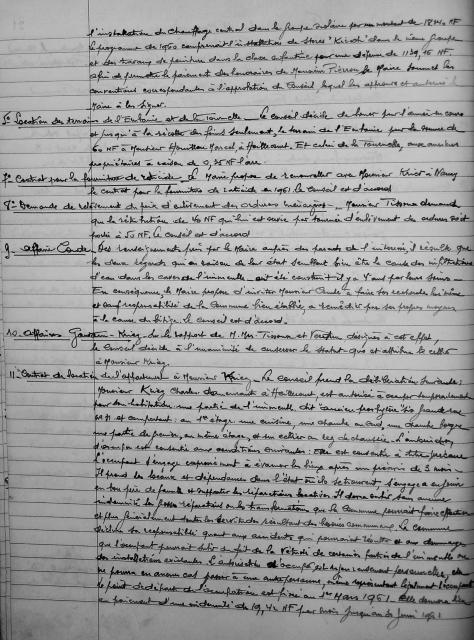 l'installation du chauffage central dans le groupe scolaire pour un montant de NF
le programme de 1960 comprenant l'installation de stores "Kirsch" dans le même groupe
et des travaux de peinture dans la classe enfantine pour une dépense de 1139,15 NF
afin de permettre le paiement des honoraires de Monsieur le Maire soumet les
conventions correspondantes à l'approbation du Conseil, lequel les approuve et autorise le
Maire à les signer.
Location des terrains de et de la Tournelle - Le conseil décide de louer pour l'année en cours
et jusqu'à la récolte des foins seulement, le terrain de pour la somme de
60 NF à Monsieur Marcel à Et celui de la Tournelle, aux anciens
propriétaires à raison de 0,35 NF l'are.
7° Contrat pour la fourniture de - M. le Maire propose de renouveler avec Monsieur à Nancy
le contrat pour la fourniture de en 1961 le Conseil est d'accord
8° Demande de relèvement du prix d'enlèvement des ordures ménagères - Monsieur demande
que la rétribution de 40 NF qui lui est servie par tournée d'enlèvement des ordures soit
portée à 50 NF. Le conseil est d'accord
9- Affaire - Des renseignements pris par le Maire auprès des parents de l'intéressé, il résulte que
les deux regards qui en raison de leur état semblent bien être la cause des infiltrations
d'eau dans les caves de l'immeuble - ont été construits il y a ans par leurs soins -
En conséquence, le Maire propose d'inviter Monsieur à faire ses recherches lui même
et sauf responsabilité de la Commune bien établie, à remédier par ses propres moyens
à la cause du litige. Le conseil est d'accord.
10. Affaires - - Sur le rapport de M. Mrs et désignés à cet effet,
le Conseil décide à l'unanimité de conserver le statut quo et attribue le cellier
à Monsieur
11- Contrat de location de l'appartement à Monsieur - Le conseil prend la délibération suivante :
Monsieur Charles demeurant à est autorisé à occuper temporairement
pour son habitation une partie de l'immeuble dit "ancien presbytère" sis
et comportant : au 1er étage une cuisine, une chambre au sud, une chambre
une partie de grenier, au même étage, et un cellier au rez de chaussée. L'autorisation
d'occuper est consentie aux conditions suivantes : Elle est consentie à titre précaire
l'occupant s'engage expressément à évacuer les lieux après un préavis de 3 mois -
Il prend les locaux et dépendances dans l'état où ils se trouvent, s'engage à jouir
en bon père de famille et supporter les réparations locatives. Il devra subir sans aucune
indemnité les grosses réparations ou les transformations que la Commune pourrait faire effectuer
et plus généralement toutes les servitudes résultant des besoins communaux. La Commune
décline sa responsabilité quant aux accidents qui pourraient résulter et aux dommages
que l'occupant pourrait subir du fait de la vétusté de certaines parties de l'immeuble ou
des installations existantes. L'autorisation d'occuper est rigoureusement personnelle, elle
ne pourra en aucun cas passer à une autre personne, même représentant légalement l'occupant
le point de départ de l'occupation est fixé au 1er Mars 1961. Elle donnera lieu
au paiement d'une indemnité de 19,42 NF par mois jusqu'au 30 Juin 1961